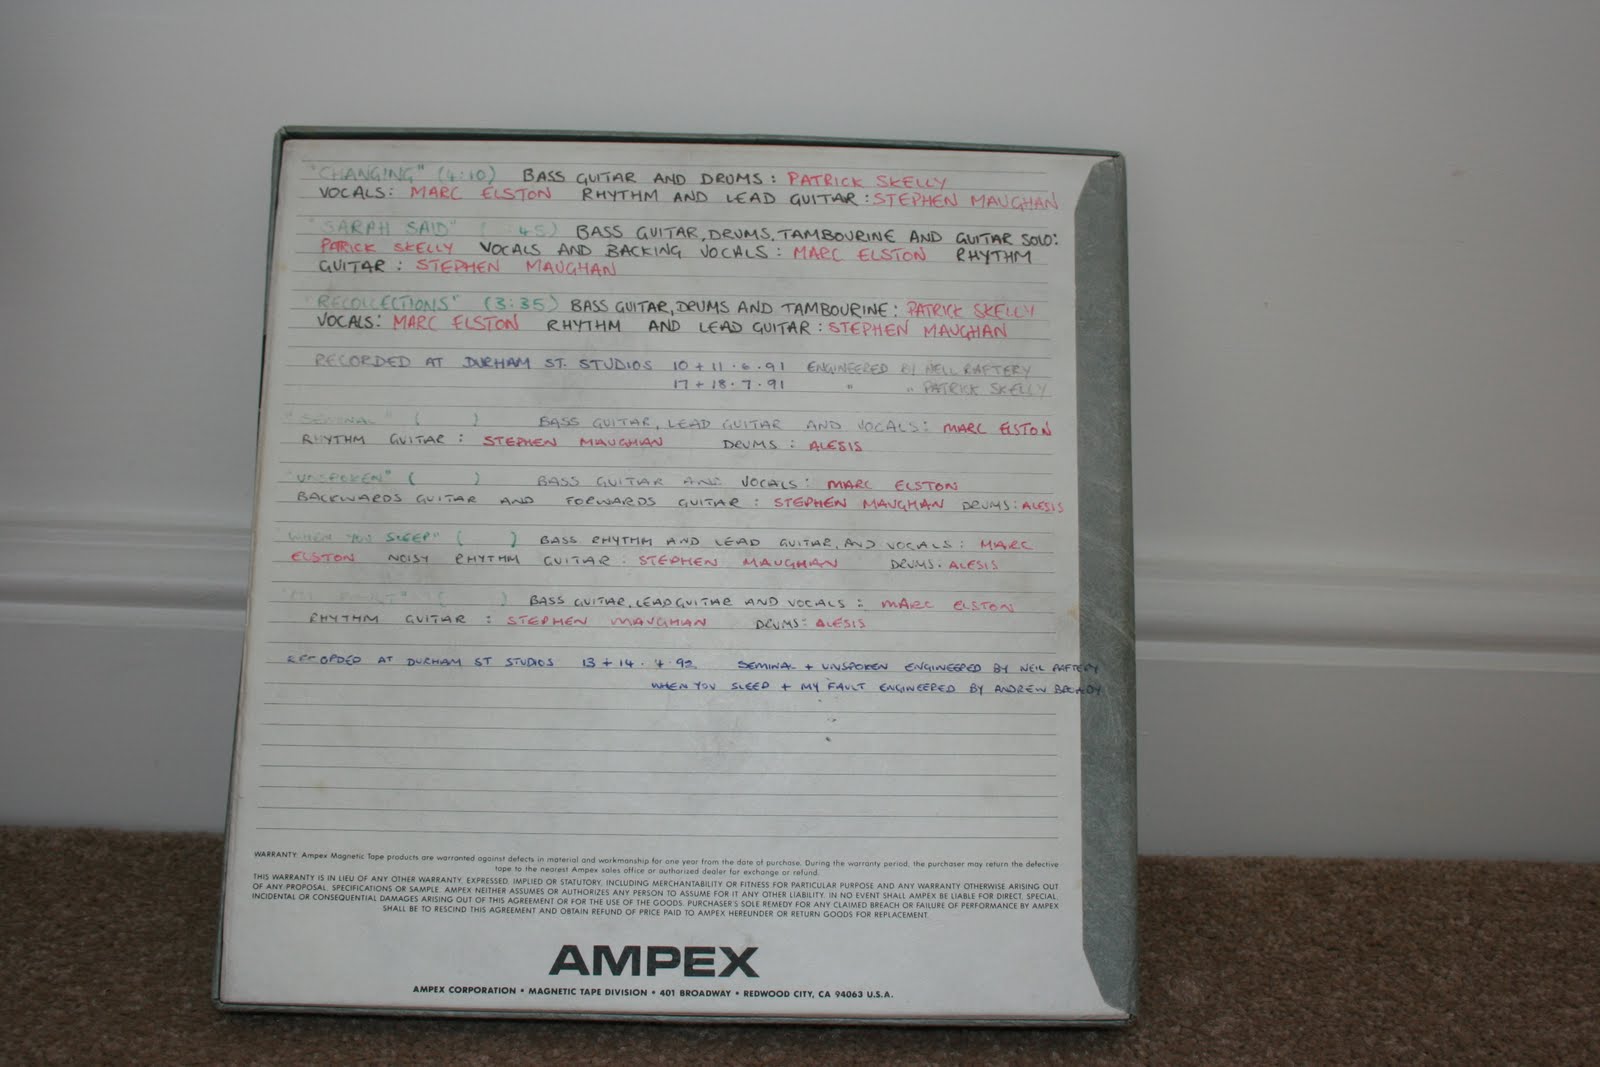 "CHANGING" (4:10) BASS GUITAR AND DRUMS: PATRICK SKELLY
VOCALS: MARC ELSTON RHYTHM AND LEAD GUITAR: STEPHEN MAUGHAN
"SARAH SAID" ( :45) BASS GUITAR, DRUMS, TAMBOURINE AND GUITAR SOLO:
PATRICK SKELLY VOCALS AND BACKING VOCALS: MARC ELSTON RHYTHM
GUITAR: STEPHEN MAUGHAN
"RECOLLECTIONS" (3:35) BASS GUITAR, DRUMS AND TAMBOURINE: PATRICK SKELLY
VOCALS: MARC ELSTON RHYTHM AND LEAD GUITAR: STEPHEN MAUGHAN
RECORDED AT DURHAM ST. STUDIOS 10 + 11 · 6 · 91 ENGINEERED BY NEIL RAFTERY
17 + 18 · 7 · 91 " " PATRICK SKELLY
"SEMINAL" ( ) BASS GUITAR, LEAD GUITAR AND VOCALS: MARC ELSTON
RHYTHM GUITAR: STEPHEN MAUGHAN DRUMS: ALESIS
"UNSPOKEN" ( ) BASS GUITAR AND VOCALS: MARC ELSTON
BACKWARDS GUITAR AND FORWARDS GUITAR: STEPHEN MAUGHAN DRUMS: ALESIS
WHEN YOU SLEEP" ( ) BASS RHYTHM AND LEAD GUITAR, AND VOCALS: MARC
ELSTON NOISY RHYTHM GUITAR: STEPHEN MAUGHAN DRUMS: ALESIS
"MY FAULT" ( ) BASS GUITAR, LEAD GUITAR AND VOCALS: MARC ELSTON
RHYTHM GUITAR: STEPHEN MAUGHAN DRUMS: ALESIS
RECORDED AT DURHAM ST STUDIOS 13 + 14 · 4 · 92 SEMINAL + UNSPOKEN ENGINEERED BY NEIL RAFTERY
WHEN YOU SLEEP + MY FAULT ENGINEERED BY ANDREW
WARRANTY: Ampex Magnetic Tape products are warranted against defects in material and workmanship for one year from the date of purchase. During the warranty period, the purchaser may return the defective
tape to the nearest Ampex sales office or authorized dealer for exchange or refund.
THIS WARRANTY IS IN LIEU OF ANY OTHER WARRANTY, EXPRESSED, IMPLIED OR STATUTORY, INCLUDING MERCHANTABILITY OR FITNESS FOR PARTICULAR PURPOSE AND ANY WARRANTY OTHERWISE ARISING OUT
OF ANY PROPOSAL, SPECIFICATIONS OR SAMPLE. AMPEX NEITHER ASSUMES OR AUTHORIZES ANY PERSON TO ASSUME FOR IT ANY OTHER LIABILITY. IN NO EVENT SHALL AMPEX BE LIABLE FOR DIRECT, SPECIAL,
INCIDENTAL OR CONSEQUENTIAL DAMAGES ARISING OUT OF THIS AGREEMENT OR FOR THE USE OF THE GOODS. PURCHASER'S SOLE REMEDY FOR ANY CLAIMED BREACH OR FAILURE OF PERFORMANCE BY AMPEX
SHALL BE TO RESCIND THIS AGREEMENT AND OBTAIN REFUND OF PRICE PAID TO AMPEX HEREUNDER OR RETURN GOODS FOR REPLACEMENT.
AMPEX
AMPEX CORPORATION • MAGNETIC TAPE DIVISION • 401 BROADWAY • REDWOOD CITY, CA 94063 U.S.A.